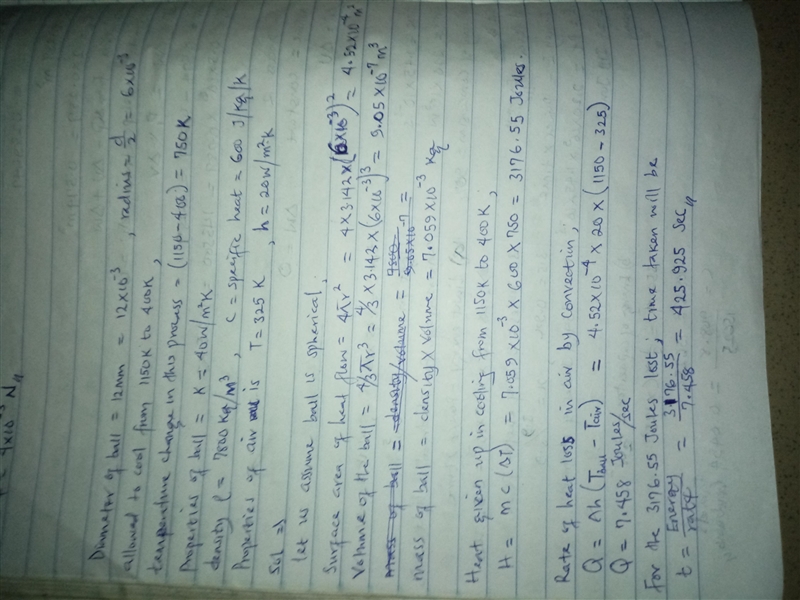 4x10⁻³ N//
Diameter of ball = 12mm = 12x10⁻³ , radius = d/2 = 6x10⁻³
allowed to cool from 1150K to 400K,
temperature change in this process = (1150-400) = 750K
Properties of ball = K = 40W/m²K
density ρ = 7800 Kg/m³ , c = specific heat = 600 J/Kg/K
Properties of air is T = 325 K , h = 20W/m²K
Sol ⇒
let us assume ball is spherical,
Surface area of heat flow = 4πr² = 4 x 3.142 x (6x10⁻³)² = 4.52x10⁻⁴ m²
Volume of the ball = 4/3 πr³ = 4/3 x 3.142 x (6x10⁻³)³ = 9.05x10⁻⁷ m³
mass of ball = density/volume = 7800/9.05x10⁻⁷ =
mass of ball = density x volume = 7.059 x10⁻³ Kg
Heat given up in cooling from 1150K to 400K,
H = mc(ΔT) = 7.059 x10⁻³ x 600 x 750 = 3176.55 Joules.
Rate of heat loss in air by convection,
Q = Ah (Tball - Tair) = 4.52x10⁻⁴ x 20 x (1150-325)
Q = 7.458 Joules/sec
For the 3176.55 Joules lost, time taken will be
t = Energy/rate = 3176.55/7.458 = 425.925 sec//